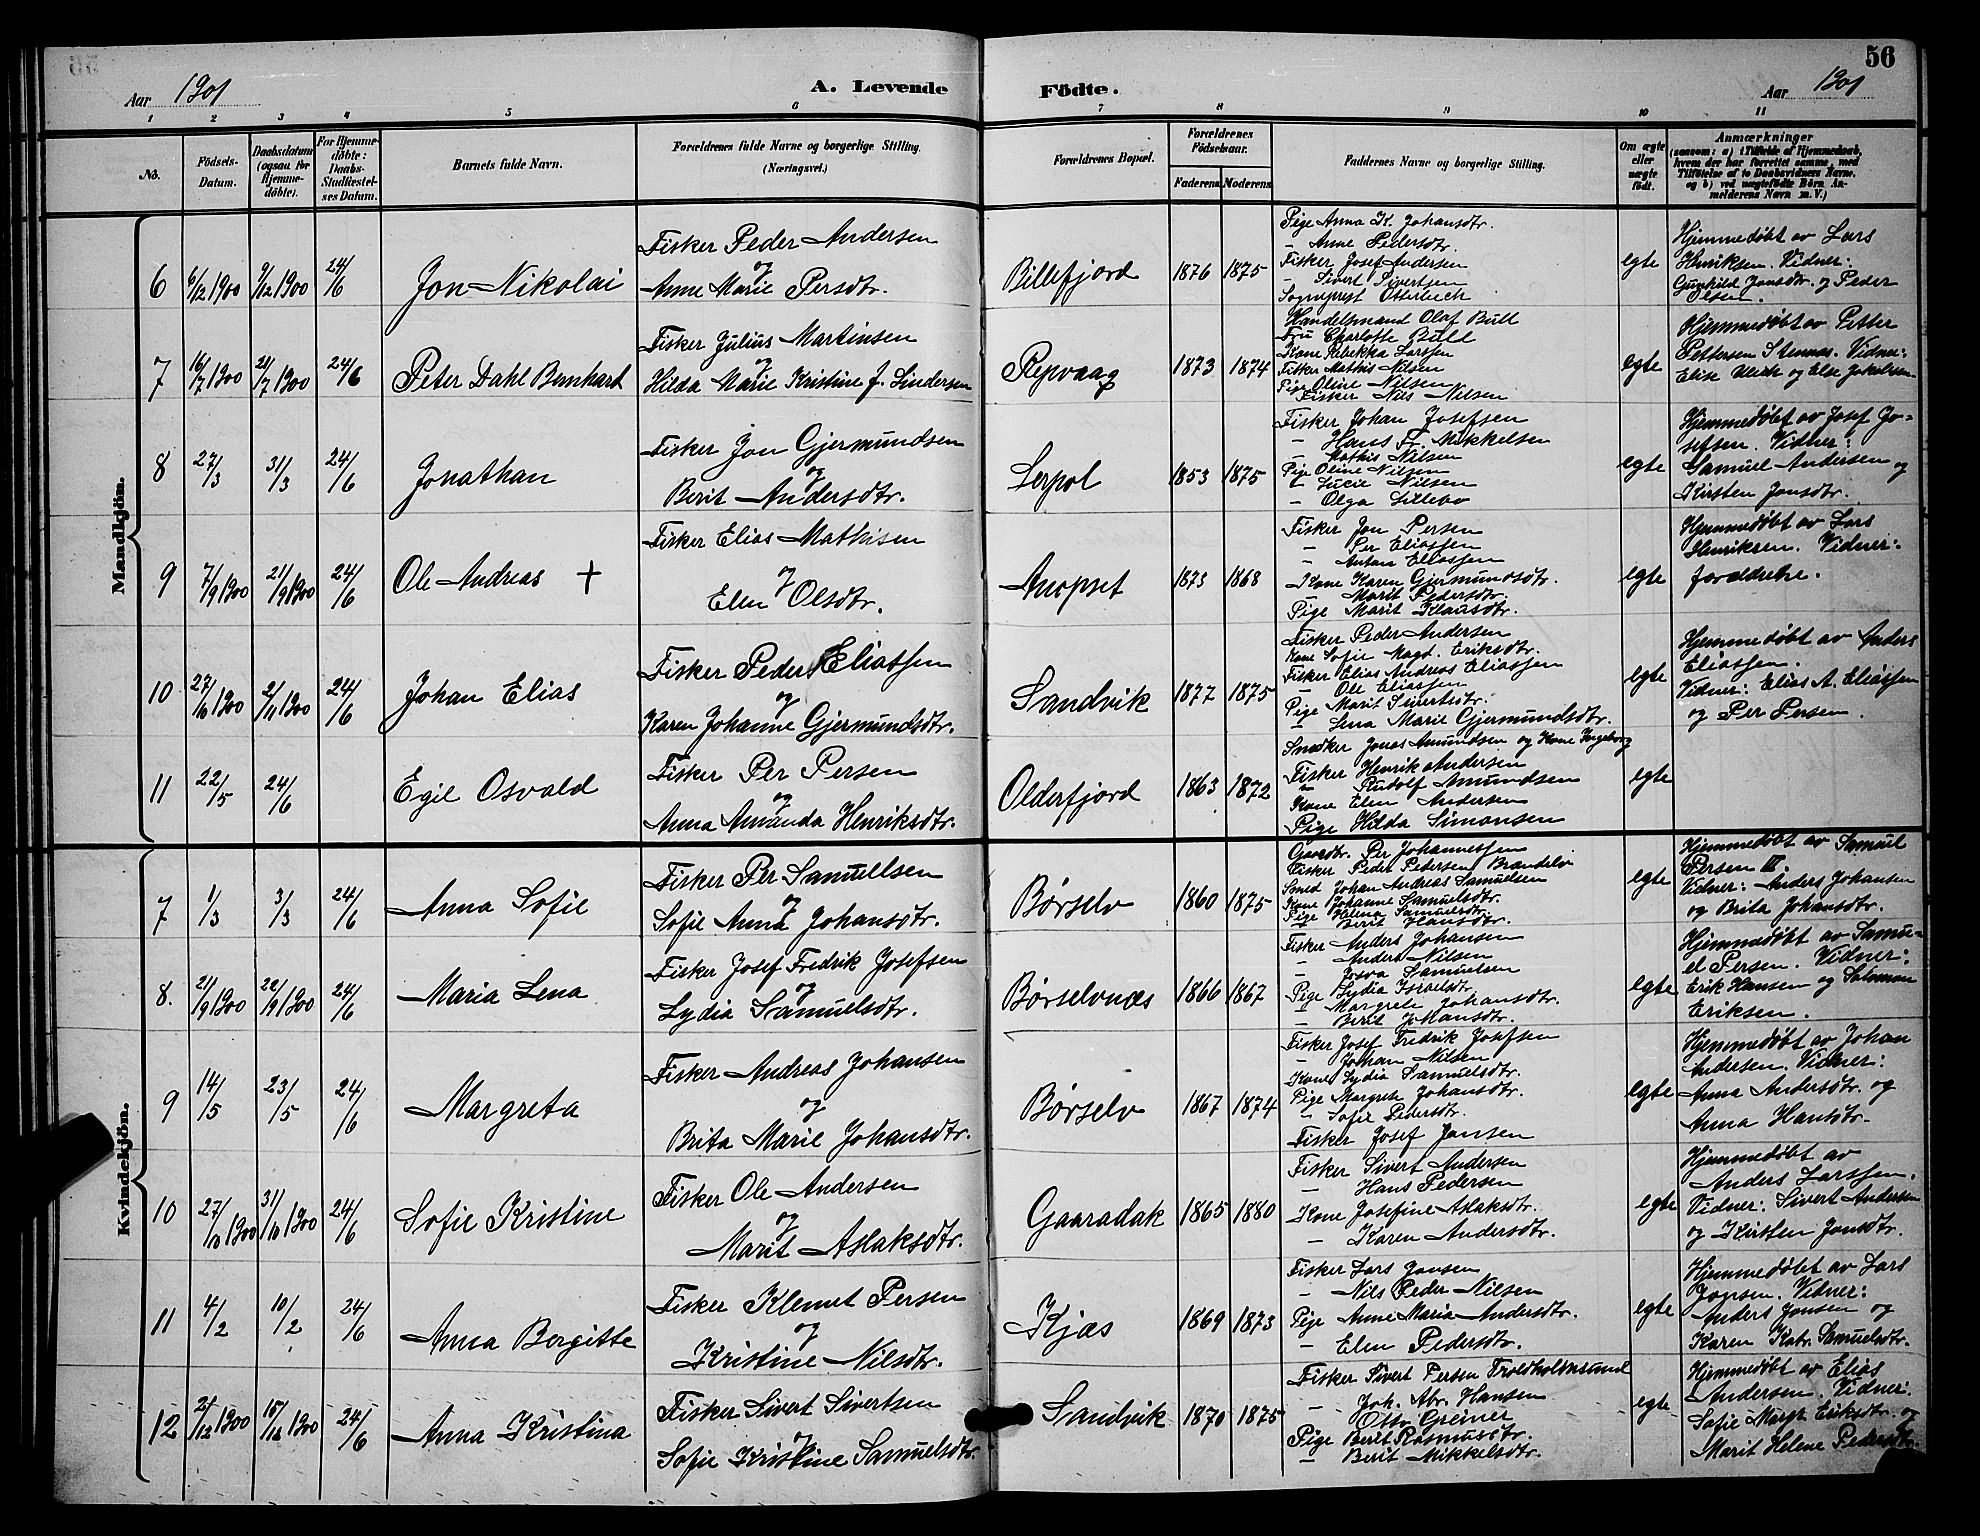 56
Aar 1901
A. Levende Födte.
Aar 1901
1 2 3 4 5 6 7 8 9 10 11
No.
Födsels-Datum.
Daabsdatum (ogsaa for Hjemmedöbte).
For Hjemmedöbte: Daabs-Stadfæstelses Datum.
Barnets fulde Navn.
Forældrenes fulde Navne og borgerlige Stilling. (Næringsvei.)
Forældrenes Bopæl.
Forældrenes Födselsaar.
Faderens Moderens
Faddernes Navne og borgerlige Stilling.
Om ægte eller uægte födt.
Anmærkninger
(saasom: a) i Tilfælde af Hjemmedaab, hvem der har forrettet samme, med Tilföielse af to Daabsvidners Navne, og b) ved uægtefödte Börn Anmelderens Navn m. V.)
Mandkjön.
6 6/12 1900 9/12 1900 24/6 Jon Nikolai
Fisker Peder Andersen
og
Anne Marie Persdtr.
Billefjord 1876 1875
Pige Anna K. Johansdtr.
- Anne Pedersdtr.
Fisker Josef Andersen
- Sivert Sivertsen
Sogneprest Otterbech
egte
Hjemmedøbt av Lars
Henriksen. Vidner:
Gunhild Jonsdtr. og Peder
Olsen.
7 16/7 1900 21/7 1900 24/6 Peter Dahl Bernhart
Fisker Julius Martinsen
og
Hilda Marie Kristine f. Lindersen
Repvaag 1873 1874
Handelsmand Olaf Bull
Fru Charlotte Buld
Kone Rebekka Larssen
Fisker Mathis Nilsen
Pige Oline Nilsen
Fisker Nils Nilsen
egte
Hjemmedøbt av Petter
Pettersen Stennes. Vidner:
Elise Ulrik og Else Jakobsen.
8 27/3 31/3 24/6 Jonathan
Fisker Jon Gjermundsen
og
Berit Andersdtr.
Lerpol 1853 1875
Fisker Johan Josefsen
- Hans Fr. Mikkelsen
- Mathis Nilsen
Pige Oline Nilsen
- Lucie Nilsen
- Olga Lillebo
egte
Hjemmedøbt av Josef Jo-
sefsen. Vidner:
Samuel Andersen og
Kirsten Jonsdtr.
9 7/9 1900 21/9 1900 24/6 Ole Andreas +
Fisker Elias Mathisen
og
Elen Olsdtr.
Anopset 1873 1868
Fisker Jon Persen
- Per Eliassen
- Anton Eliassen
Kone Karen Gjermundsdtr.
- Marit Pedersdtr.
Pige Marit Klausdtr.
egte
Hjemmedøbt av Lars
Henriksen. Vidner:
forældrene.
10 27/10 1900 2/11 1900 24/6 Johan Elias
Fisker Peder Eliassen
og
Karen Johanne Gjermundsdtr.
Sandvik 1877 1875
Fisker Peder Andersen
Kone Sofie Magd. Eriksdtr.
Fisker Elias Andreas Eliassen
- Ole Eliassen
Pige Marit Sivertsdtr.
- Lena Marie Gjermundsdtr.
egte
Hjemmedøbt av Anders
Eliassen.
Vidner: Elias A. Eliassen
og Per Persen.
11 22/5 24/6 Egil Osvald
Fisker Per Persen
og
Anna Amanda Henriksdtr.
Olderfjord 1863 1872
Snedker Jonas Amundsen og Kone Ingeborg
Fisker Henrik Andersen
- Rudolf Amundsen
Kone Elen Andersen
Pige Hilda Simonsen
egte
Kvindekjön.
7 1/3 3/3 24/6 Anna Sofie
Fisker Per Samuelsen
og
Sofie Anna Johansdtr.
Børselv 1860 1875
Gaardbr. Per Johannessen
Fisker Peder Pedersen Brandelv
Smed Johan Andreas Samuelsen
Kone Johanne Samuelsdtr.
Pige Helena Samuelsdtr.
- Berit Hansdtr.
egte
Hjemmedøbt av Samuel
Persen III
Vidner: Anders Johansen
og Brita Johansdtr.
8. 21/9 1900 22/9 1900 24/6 Maria Lena
Fisker Josef Fredrik Josefsen
og
Lydia Samuelsdtr.
Børselvnes 1866 1867
Fisker Anders Johansen
- Anders Nilsen
- Josva Samuelsen
Pige Lydia Israelsdtr.
- Margrete Johansdtr.
- Berit Johansdtr.
egte
Hjemmedøbt av Samu-
el Persen. Vidner:
Erik Hansen og Salomon
Eriksen.
9 14/5 23/5 24/6 Margreta
Fisker Andreas Johansen
og
Brita Marie Johansdtr.
Børselv 1867 1874
Fisker Josef Fredrik Josefsen
- Johan Nilsen
Kone Lydia Samuelsdtr.
Pige Margrete Johansdtr.
- Sofie Pedersdtr.
Fisker Josef Jansen
egte
Hjemmedøbt av Johan
Andersen. Vidner:
Anna Andersdtr. og
Anna Hansdtr.
10 27/10 1900 31/10 1900 24/6 Sofie Kristine
Fisker Ole Andersen
og
Marit Aslaksdtr.
Gaaradak 1865 1880
Fisker Sivert Andersen
- Hans Pedersen
Kone Josefine Aslaksdtr.
- Karen Andersdtr.
egte
Hjemmedøbt av
Anders Larssen.
Vidner: Sivert Andersen
og Kirsten Jonsdtr.
11 4/2 10/2 24/6 Anna Borgitte
Fisker Klemet Persen
og
Kristine Nilsdtr.
Kjæs 1869 1873
Fisker Lars Jonsen
- Nils Peder Nilsen
Pige Anne Maria Andersdtr.
- Elen Pedersdtr.
egte
Hjemmedøbt av Lars
Jonsen. Vidner:
Anders Jonsen og
Karen Katr. Samuelsdtr.
12 2/12 1900 15/12 1900 24/6 Anna Kristina
Fisker Sivert Sivertsen
og
Sofie Kristine Samuelsdtr.
Sandvik 1870 1875
Fisker Sivert Persen Troldholmsund
- Joh. Abr. Hansen
- Otto Greiner
Pige Berit Rasmusdtr.
- Berit Mikkelsdtr.
egte
Hjemmedøbt av Elias
Andersen. Vidner:
Sofie Margr. Eriksdtr. og
Marit Helene Pedersdtr.